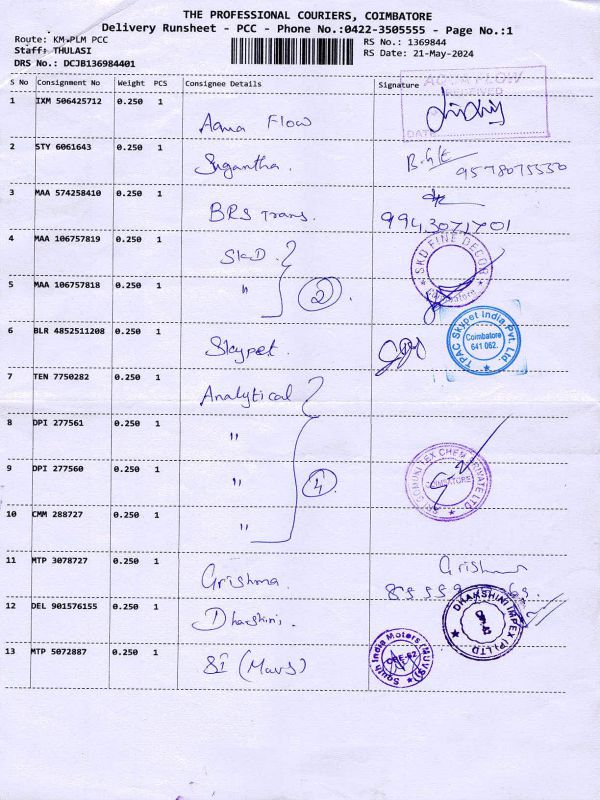 THE PROFESSIONAL COURIERS, COIMBATORE
Delivery Runsheet - PCC - Phone No.:0422-3505555 - Page No.:1
Route: KM-PLM PCC
RS No.: 1369844
Staff: THULASI
RS Date: 21-May-2024
DRS No.: DCJB136984401
S No Consignment No Weight PCS Consignee Details Signature
1 IXM 506425712 0.250 1 Aqua Flow
AQUA FLOW
RECEIVED
DATE
2 STY 6061643 0.250 1 Sugantha.
9578075550
3 MAA 574258410 0.250 1 BRS Trans.
9943071701
4 MAA 106757819 0.250 1 SKD
SKD FINE DECOR
Coimbatore
5 MAA 106757818 0.250 1 " 2
6 BLR 4852511208 0.250 1 Skypet
TPAC Skypet India Pvt. Ltd.
Coimbatore
641 062.
7 TEN 7750282 0.250 1 Analytical
8 DPI 277561 0.250 1 "
9 DPI 277560 0.250 1 " 4
CHEM PRIVATE LTD
COIMBATORE
10 CMM 288727 0.250 1 "
11 MTP 3078727 0.250 1 Grishma.
12 DEL 901576155 0.250 1 Dharshini.
DHARSHINI IMPEX (P) LTD
13 MTP 5072887 0.250 1 SI (Muvs)
South India Motors (MUVS)
CBE-62